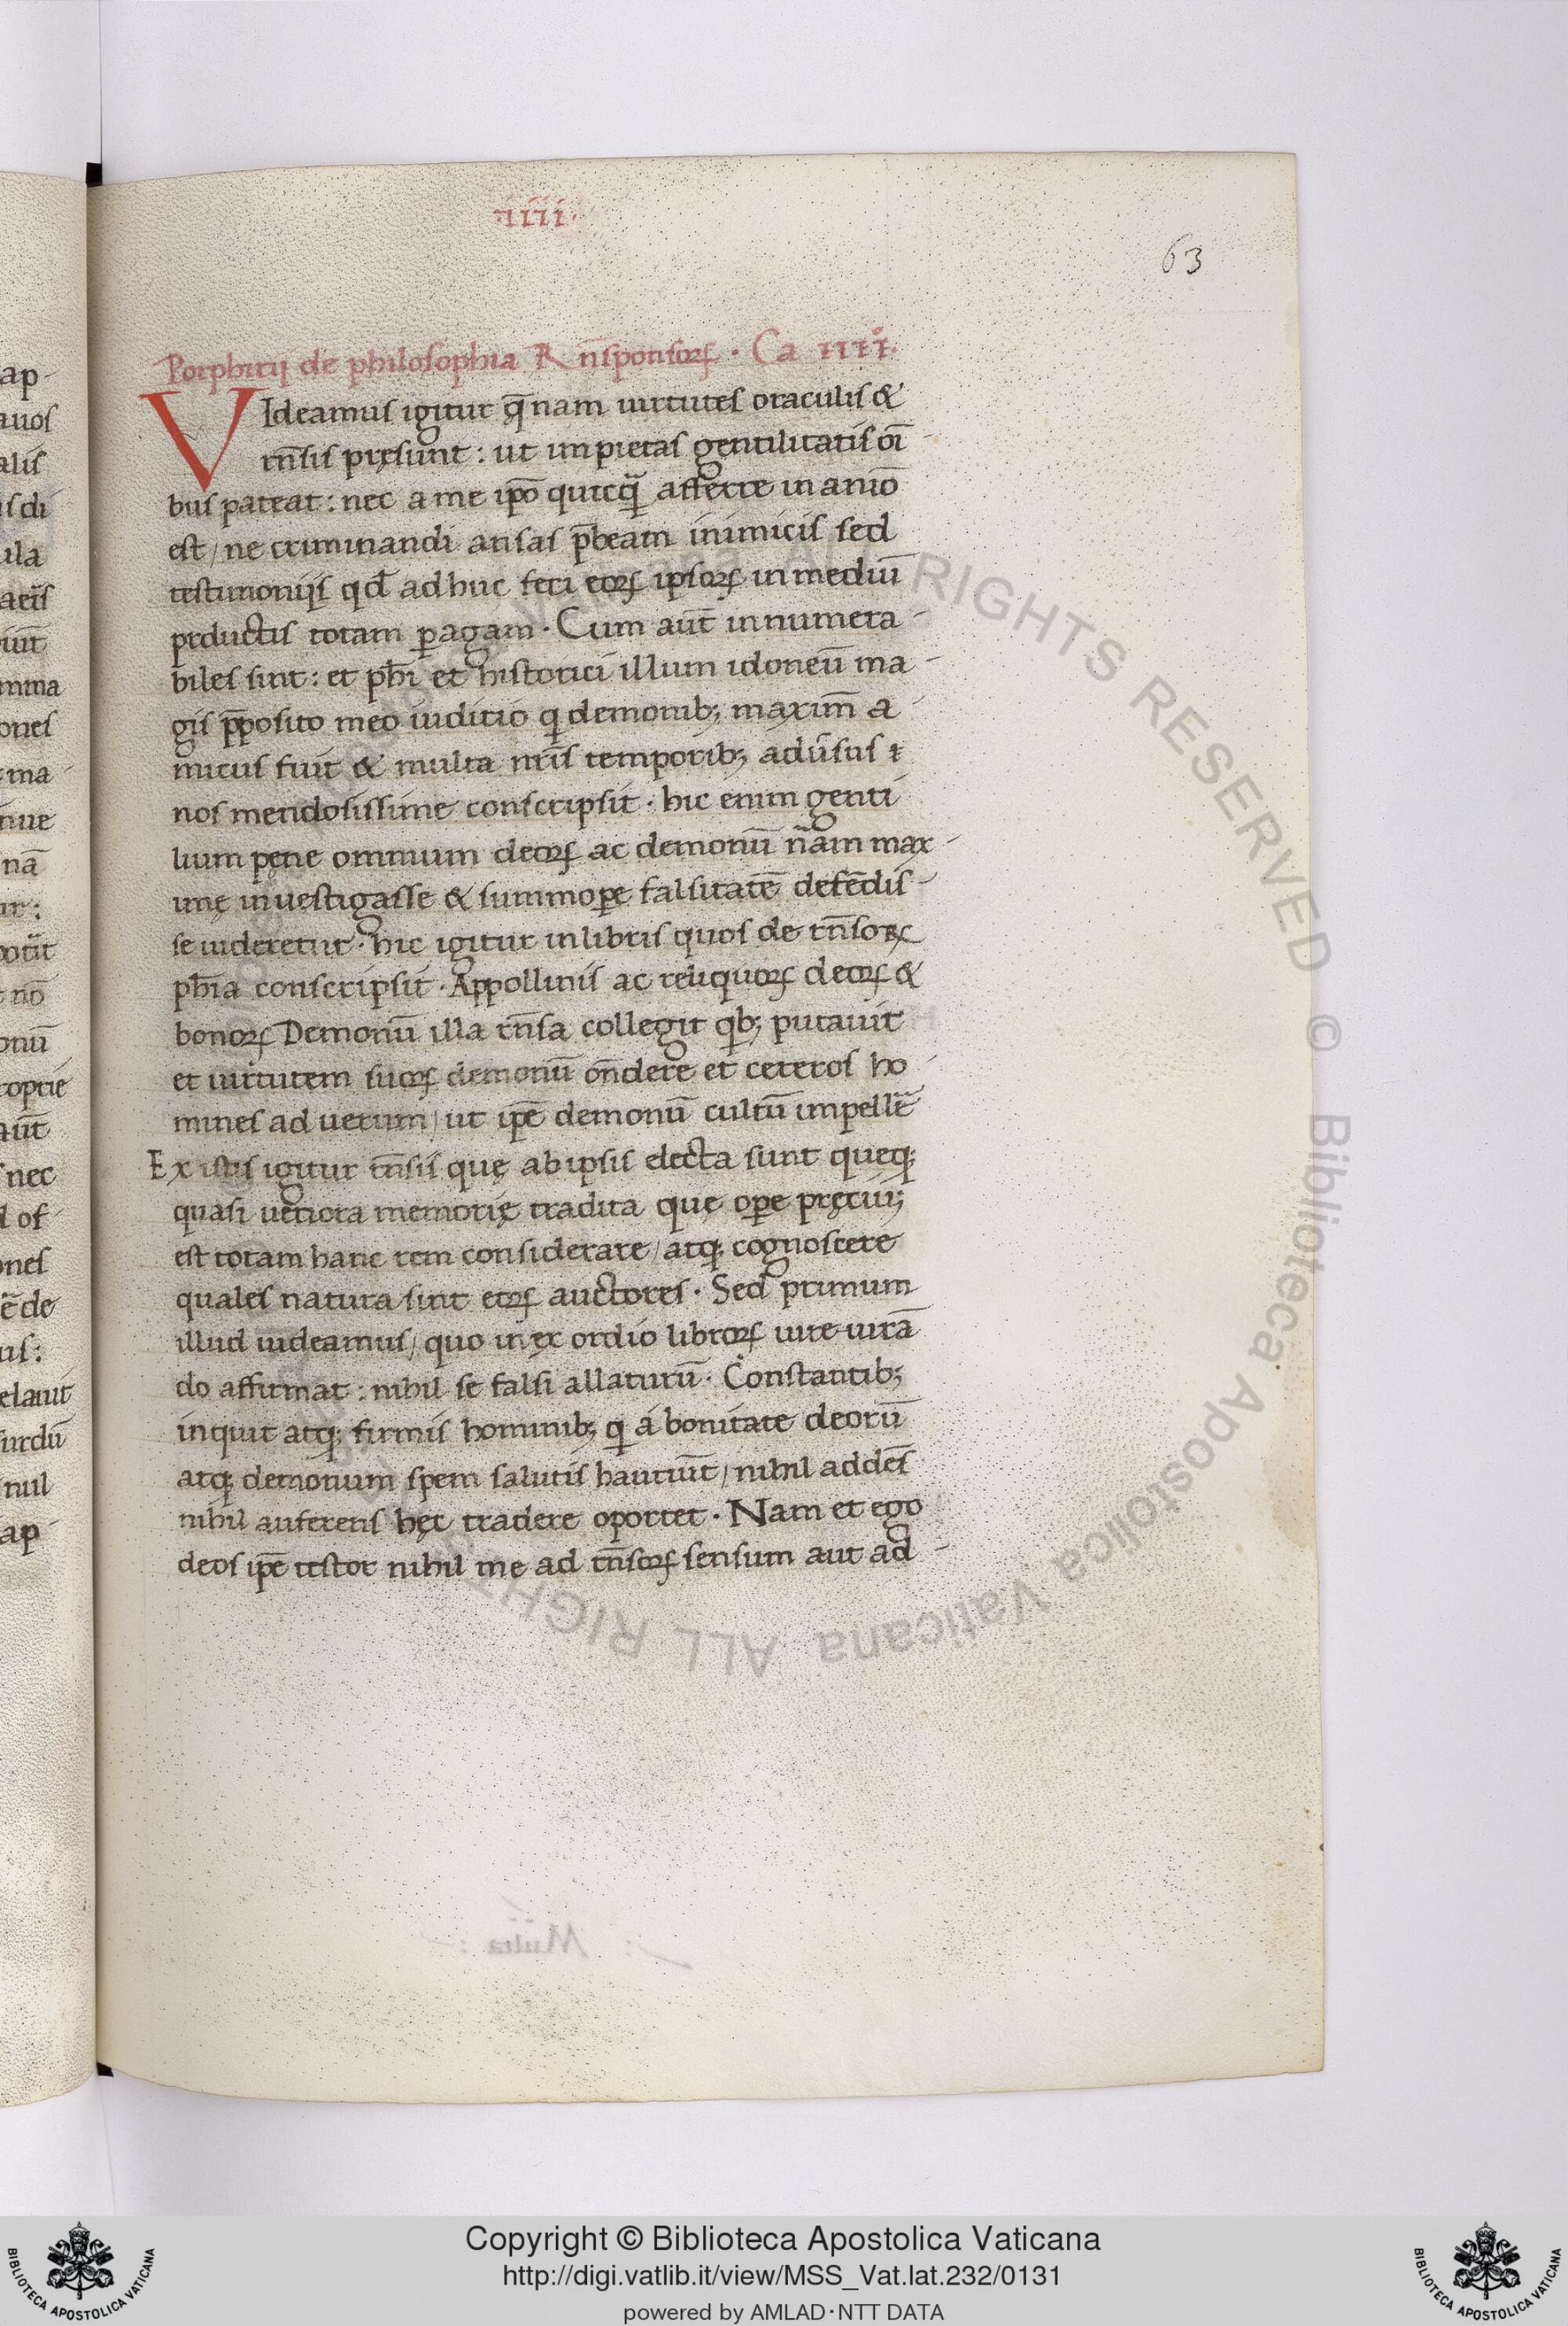 ·iiii·
63
Porphirij de philosophia R̄ n̄sponsoꝝ · Ca iiii°.
VIdeamus igitur q̄nam uirtutes oraculis &
rn̄sis pręsunt : ut impietas gentilitatis oī
bus pateat : nec a me ip̄o quicq̄ afferre in anīo
est / ne criminandi ansas p̄beam inimicis sed
testimonijs qđ adhuc feci eoꝝ ipsoꝝ in mediū
ꝓductis totam ꝑagam · Cum aūt innumera-
biles sint : et ph̄i et historici illum idoneū ma-
gis ꝓposito meo iuditio q demonib; maxīm a-
micus fuit & multa nr̄is temporib; adu̅sus i-
nos mendosissime conscripsit · hic enim genti
lium pęne omnium deoꝝ ac demonū nãm max-
imę inuestigasse & summoꝑe falsitatē defēdis-
se uideretur · hic igitur in libris quos de rn̄soꝝ
ph̄ia conscripsit · Appollinis ac reliquoꝝ deoꝝ &
bonoꝝ Demonū illa rn̄sa collegit qb; putauit
et uirtutem suoꝝ demonū on̄dere et ceteros ho-
mines ad uerum / ut ip̄e demonū cultū impellēt
Ex istis igitur rn̄sis quę ab ipsis electa sunt queq;
quasi ueriora memorię tradita quę oꝑe pręciu;
est totam hanc rem considerare / atq; cognoscere
quales natura sint eoꝝ auctores · Sed primum
illud uideamus / quo in exordio libroꝝ iure iurā
do affirmat : nihil se falsi allaturū · Constantib;
inquit atq; firmis hominib; q a bonitate deorū
atq; demonum spem salutis hauriūt / nihil addēs
nihil auferens hęc tradere oportet · Nam et ego
deos ip̄e testor nihil me ad rn̄soꝝ sensum aut ad-
Copyright © Biblioteca Apostolica Vaticana
http://digi.vatlib.it/view/MSS_Vat.lat.232/0131
powered by AMLAD·NTT DATA